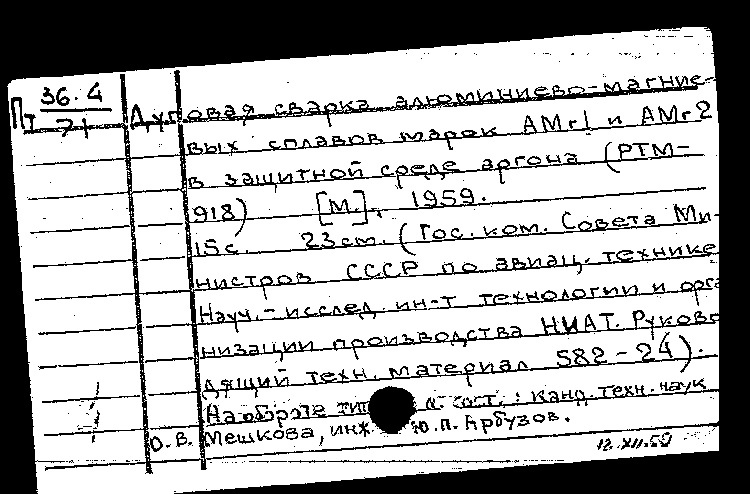 Пт 36.4/71 Дуговая сварка алюминиево-магние-
вых сплавов марок АМг1 и АМг2
в защитной среде аргона (РТМ-
918) [М.], 1959.
15с. 23см. (Гос. ком. Совета Ми-
нистров СССР по авиац. технике
Науч.-исслед. ин-т технологии и орга
низации производства НИАТ. Руково
дящий техн. материал 582-24).
На обороте тит. сост.: канд. техн. наук
О.В. Мешкова, инж Ю.П. Арбузов.
12.XII.59